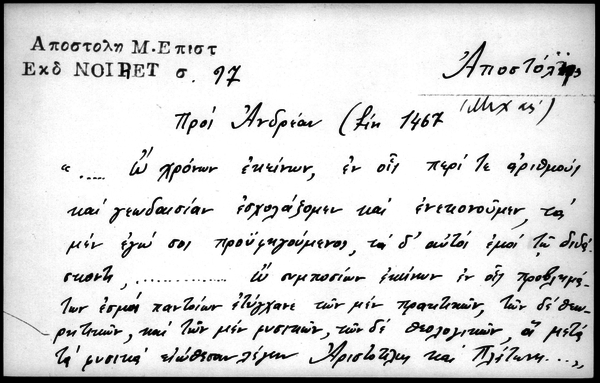 Αποστολη Μ. Επιστ
Εκδ NOIRET σ. 97
Ἀποστόλης
(Μιχαήλ)
Πρὸς Ἀνδρέαν (fin 1467
"..... Ὢ χρόνων ἐκείνων, ἐν οἷς περί τε ἀριθμούς
καὶ γεωδαισίαν ἐσχολάζομεν καὶ ἐνεκονοῦμεν, τὰ
μὲν ἐγώ σοι προϋφηγούμενος, τὰ δ' αὐτὸς ἐμοὶ τῷ διδά-
σκοντι, ............. Ὢ συμποσίων ἐκείνων ἐν οἷς προβλημά-
των ἐσμὸς παντοίων ἐτύγχανε τῶν μὲν πρακτικῶν, τῶν δὲ θεω-
ρητικῶν, καὶ τῶν μὲν φυσικῶν, τῶν δὲ θεολογικῶν, ἃ μετὰ
τὰ φυσικὰ εἰώθεσαν λέγειν Ἀριστοτέλης καὶ Πλάτων ...,,